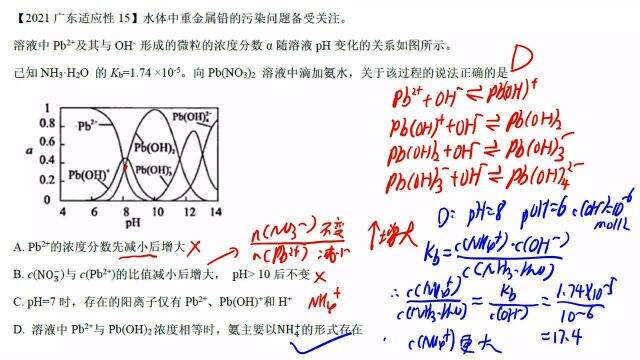 【2021 广东适应性 15】水体中重金属铅的污染问题备受关注。
溶液中 Pb²⁺及其与 OH⁻ 形成的微粒的浓度分数 α 随溶液 pH 变化的关系如图所示。
已知 NH₃·H₂O 的 K_b=1.74 ×10⁻⁵。向 Pb(NO₃)₂ 溶液中滴加氨水，关于该过程的说法正确的是
D
Pb²⁺+OH⁻⇌Pb(OH)⁺
Pb(OH)⁺+OH⁻⇌Pb(OH)₂
Pb(OH)₂+OH⁻⇌Pb(OH)₃⁻
Pb(OH)₃⁻+OH⁻⇌Pb(OH)₄²⁻
1
0.8
0.6
0.4
0.2
0
a
Pb²⁺
Pb(OH)⁺
Pb(OH)₂
Pb(OH)₃⁻
Pb(OH)₄²⁻
4 6 8 10 12 14
pH
D: pH=8 pOH=6 c(OH⁻)=10⁻⁶ mol/L
K_b=c(NH₄⁺)·c(OH⁻)/c(NH₃·H₂O)
∴ c(NH₄⁺)/c(NH₃·H₂O)=K_b/c(OH⁻)=1.74×10⁻⁵/10⁻⁶
=17.4
c(NH₄⁺)更大
n(NO₃⁻)不变/n(Pb²⁺):减小 ↑增大
A. Pb²⁺的浓度分数先减小后增大 ×
B. c(NO₃⁻)与 c(Pb²⁺)的比值减小后增大， pH> 10 后不变 ×
C. pH=7 时，存在的阳离子仅有 Pb²⁺、Pb(OH)⁺和 H⁺ NH₄⁺
D. 溶液中 Pb²⁺与 Pb(OH)₂浓度相等时，氨主要以NH₄⁺的形式存在